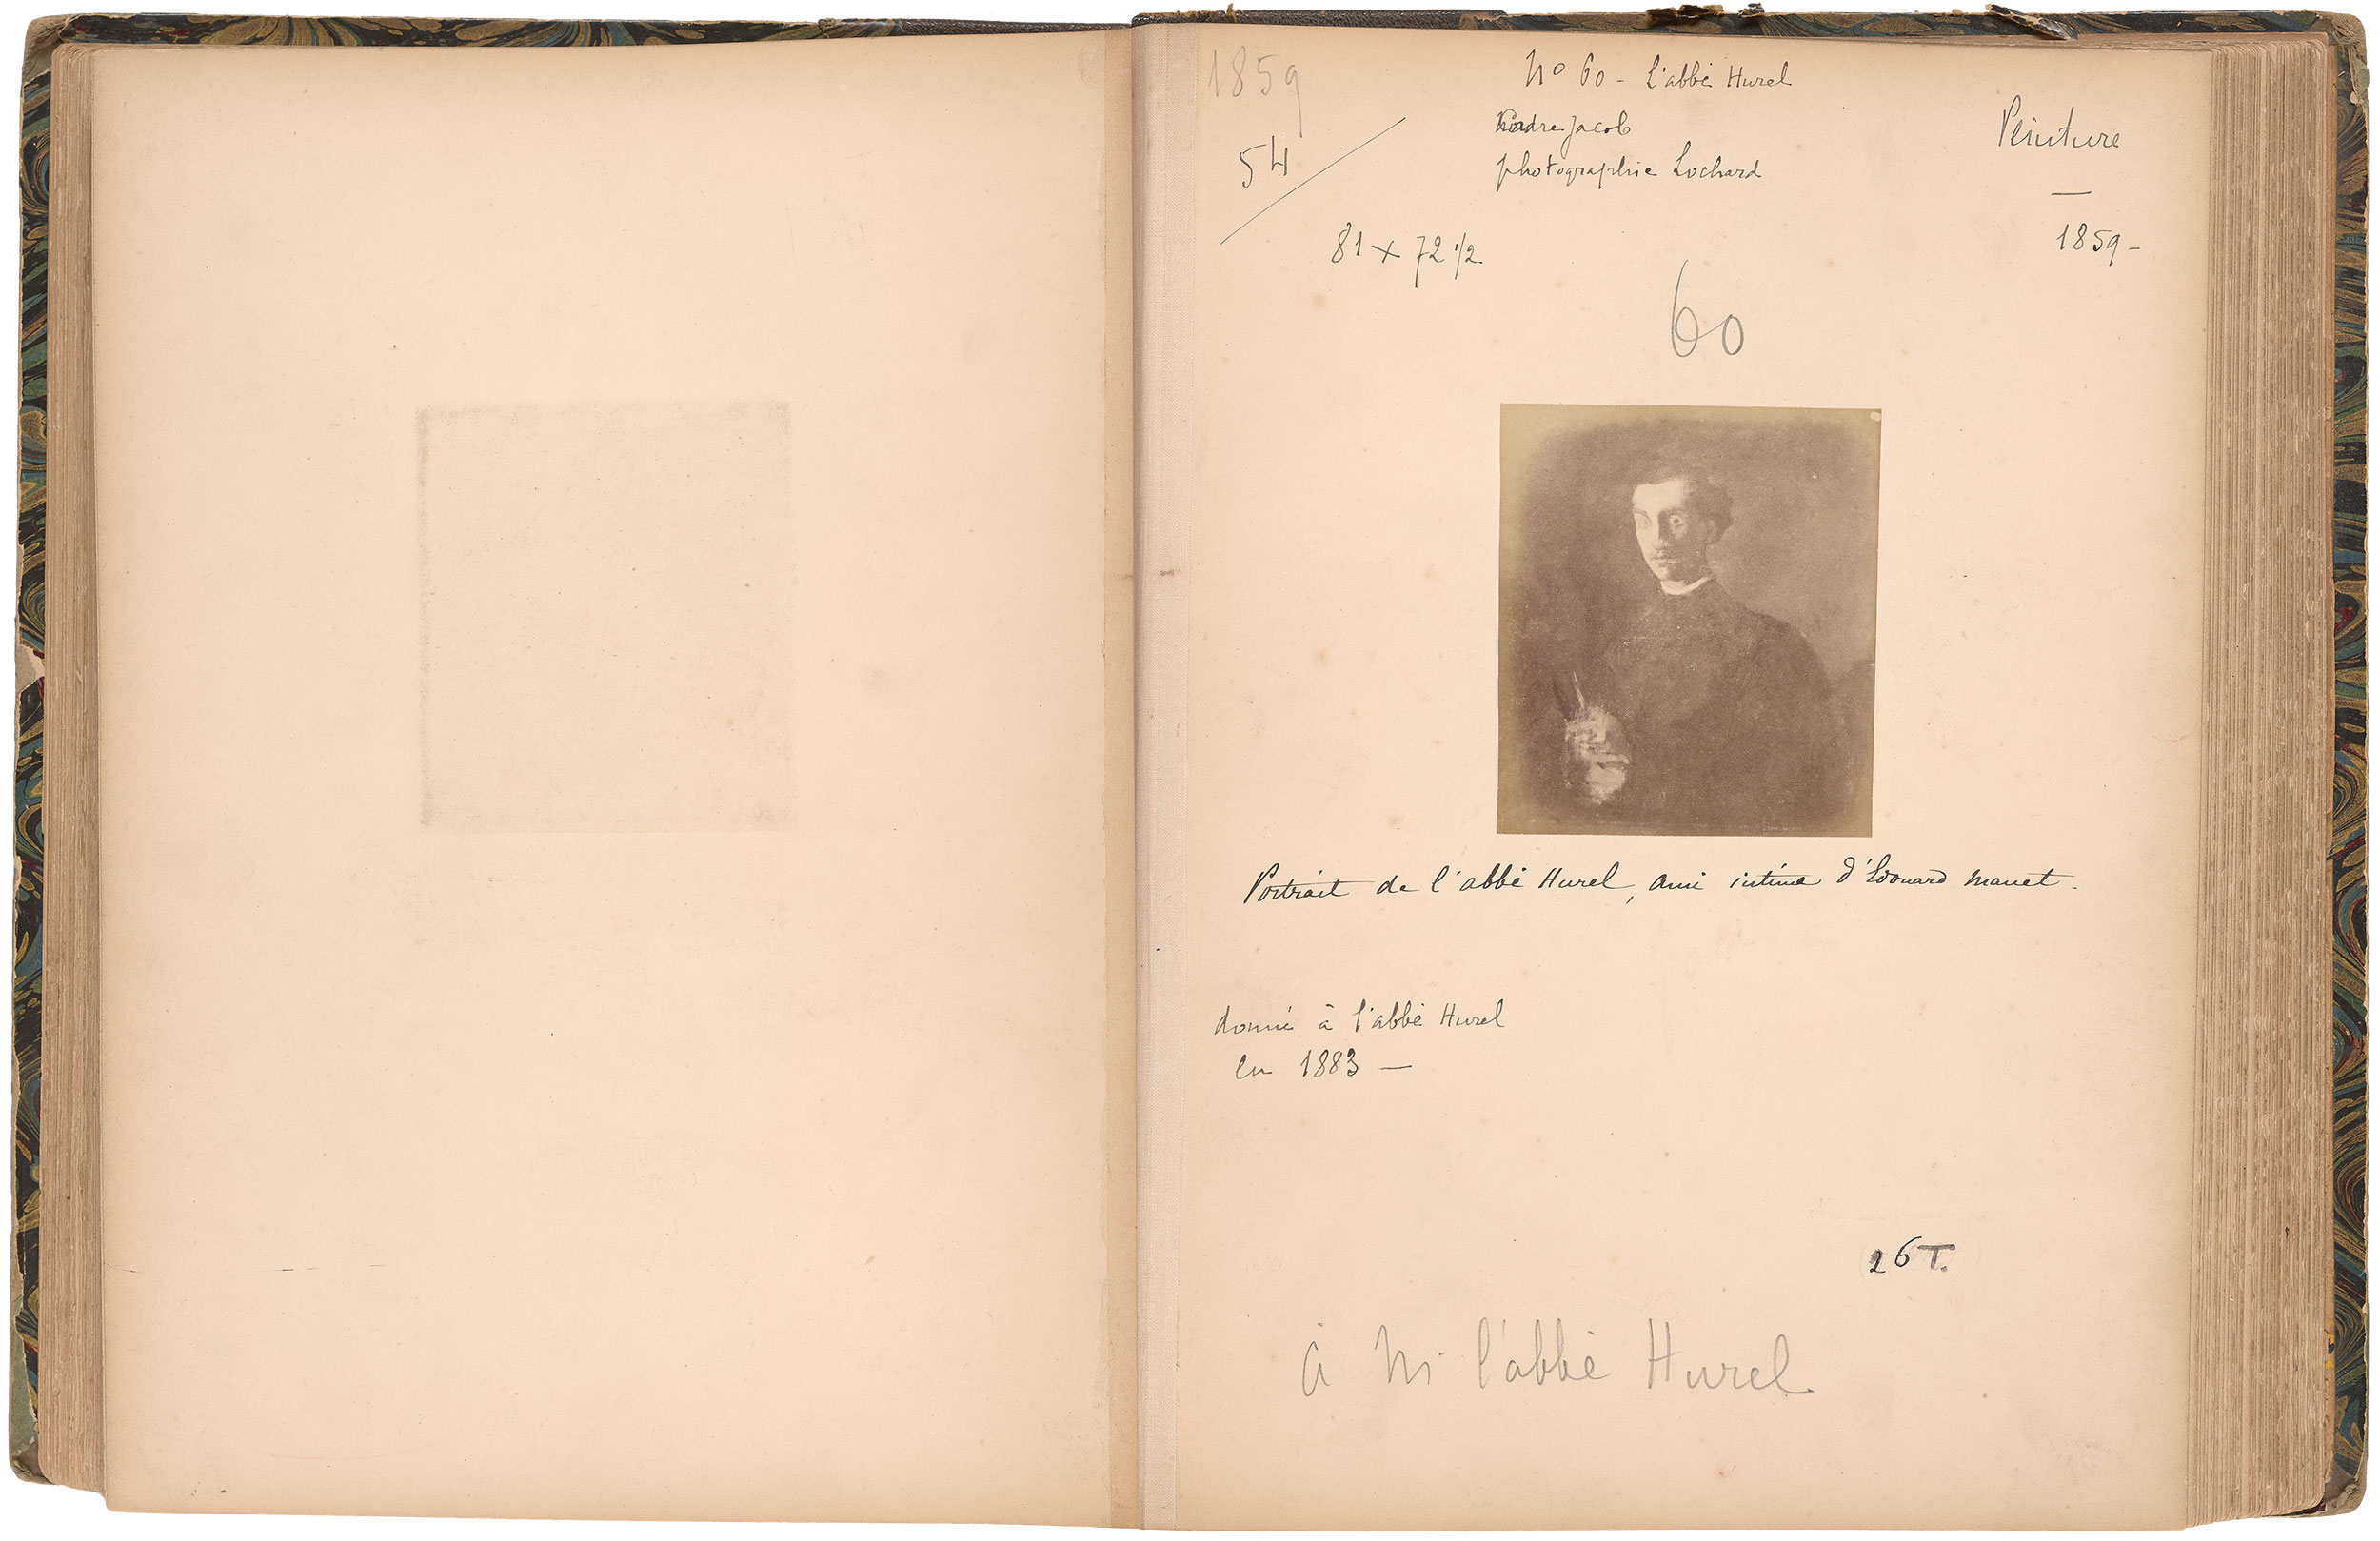 1859
No 60 - L'abbé Hurel
Cadre Jacob
Peinture
54
photographie Lochard
81 x 72 1/2
1859 -
60
Portrait de l'abbé Hurel, ami intime d'Edouard Manet.
donné à l'abbé Hurel
en 1883 —
26 T.
à M. l'abbé Hurel